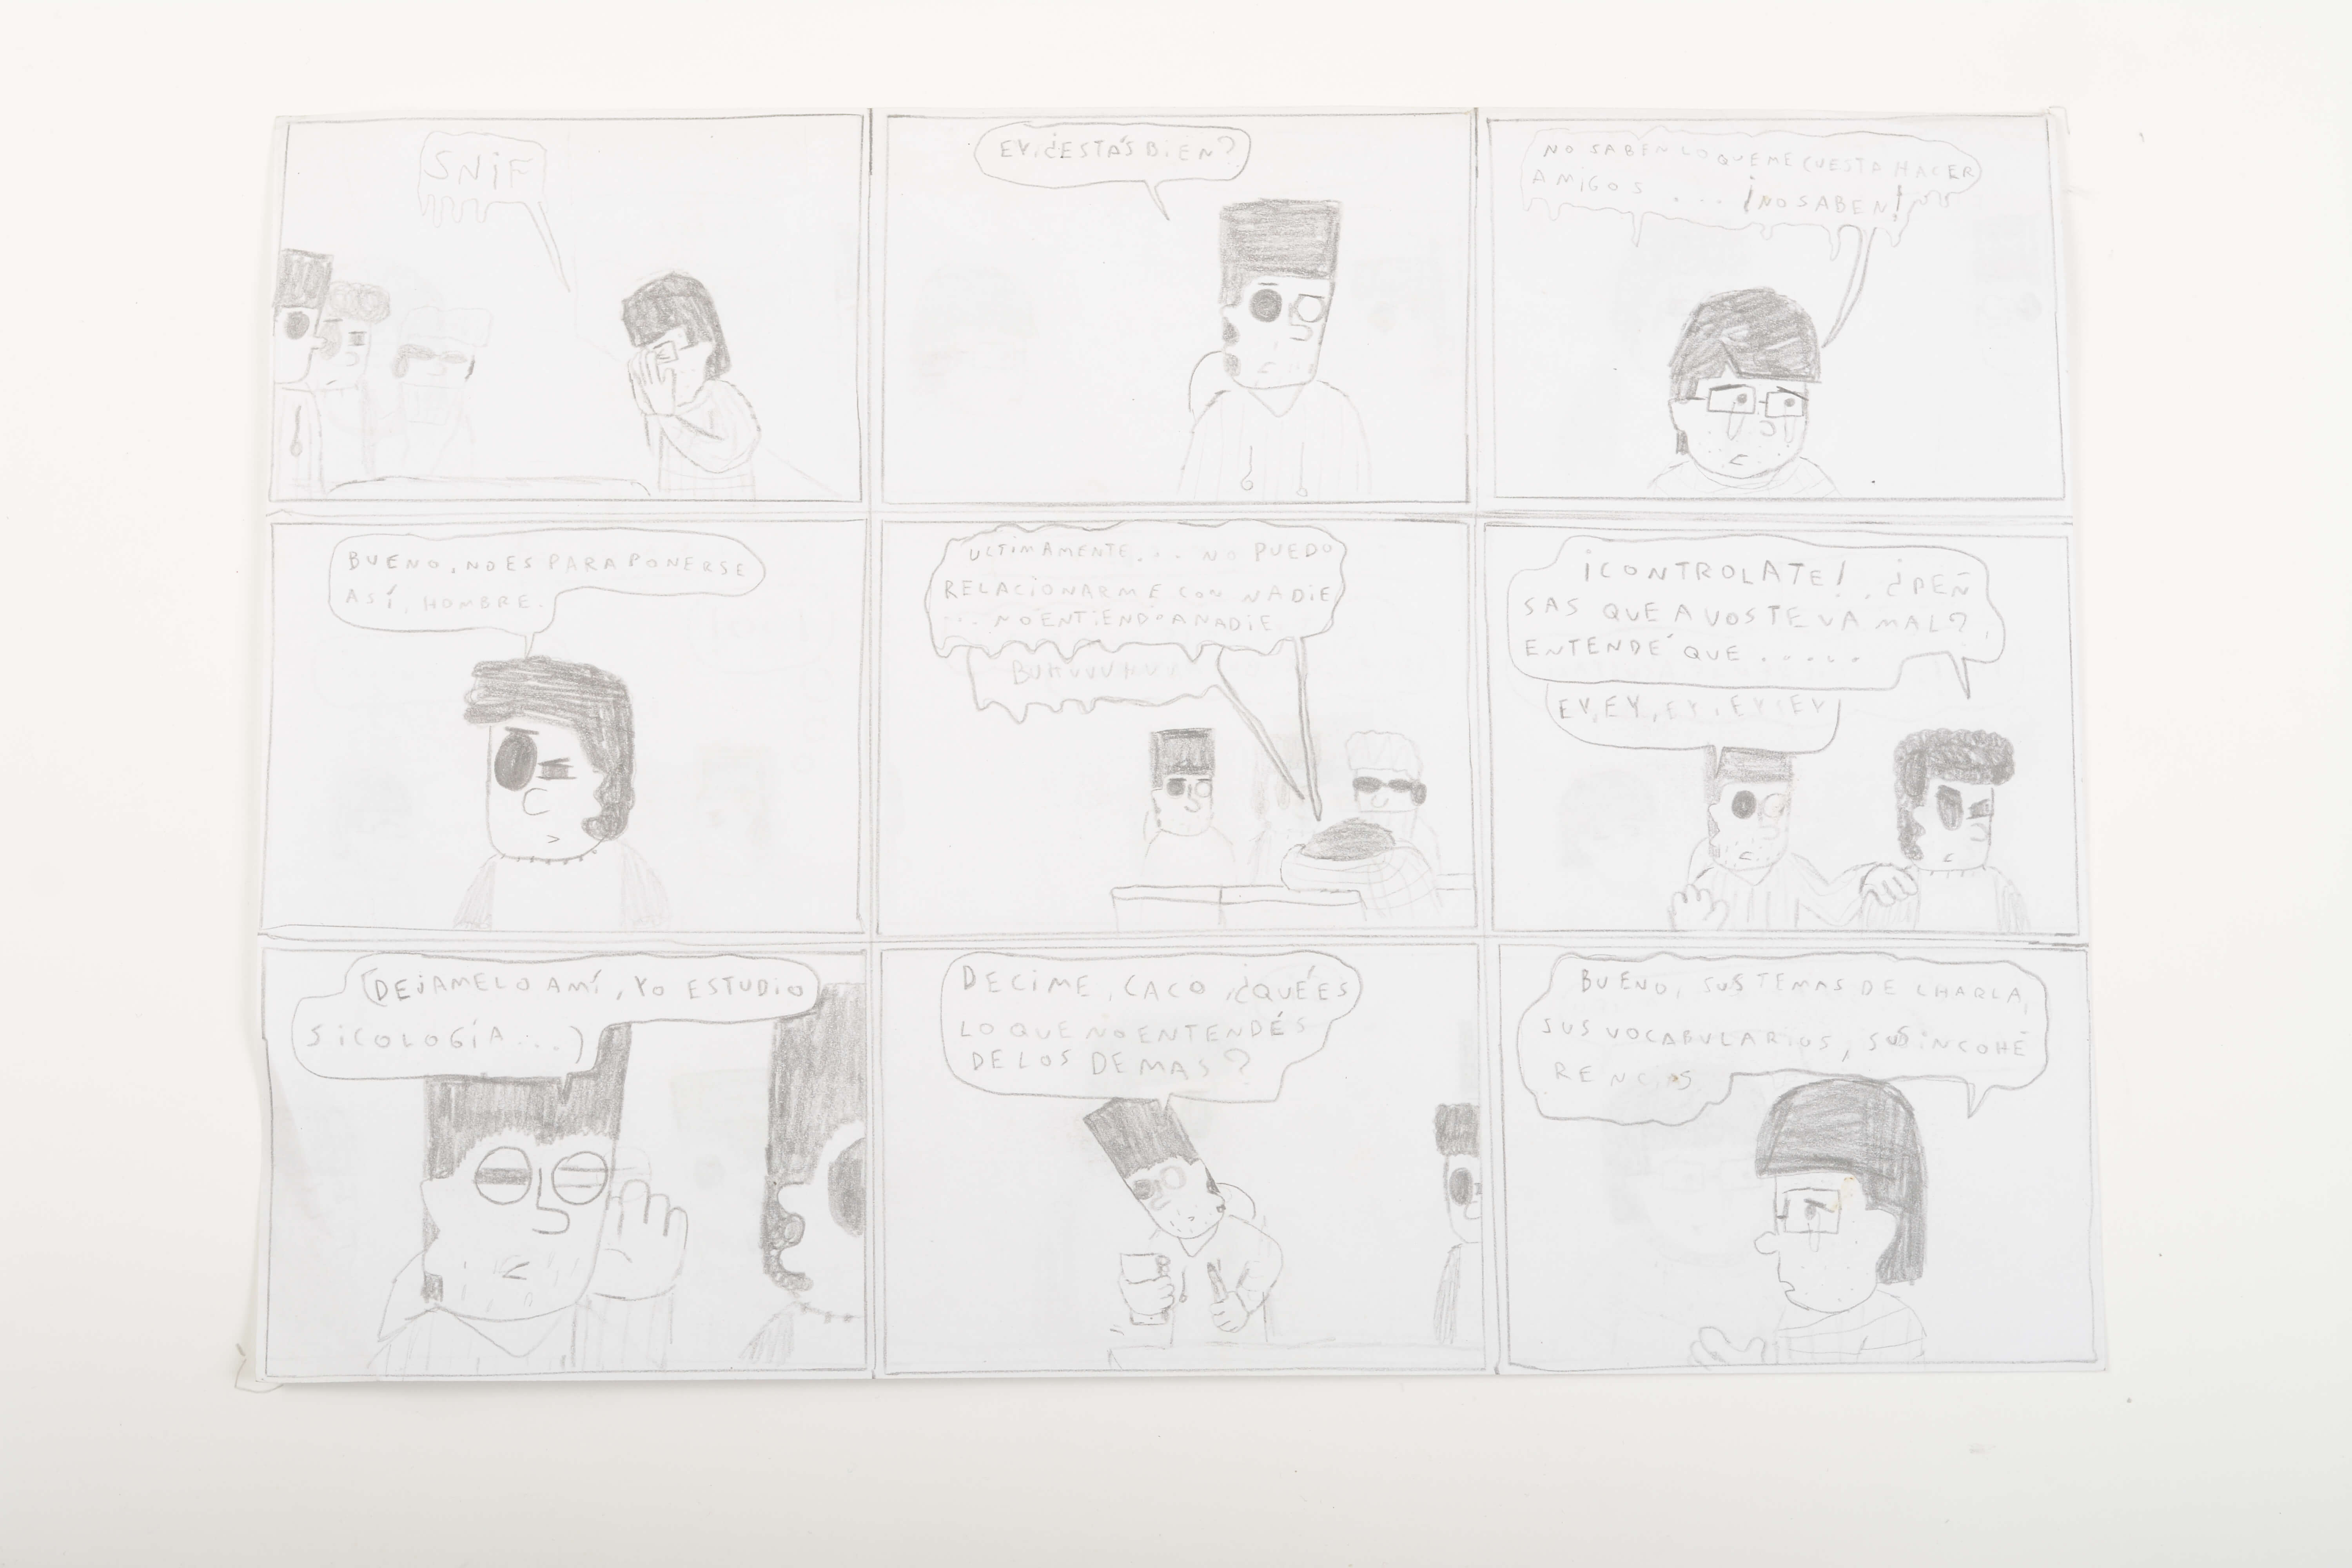 SNIF
EY, ¿ESTÁS BIEN?
NO SABEN LO QUE ME CUESTA HACER
AMIGOS . . . . ¡NO SABEN!
BUENO, NO ES PARA PONERSE
ASÍ, HOMBRE.
ULTIMAMENTE. . . NO PUEDO
RELACIONARME CON NADIE
. . . NO ENTIENDO A NADIE
¡CONTROLATE! ¿PEÑ
SAS QUE A VOS TE VA MAL?,
ENTENDÉ QUE . . . . .
EY, EY, EY, EY, EY
(DEJAMELO A MÍ, YO ESTUDIO
SICOLOGÍA . . .)
DECIME, CACO, ¿QUÉ ES
LO QUE NO ENTENDÉS
DE LOS DEMAS?
BUENO, SUS TEMAS DE CHARLA,
SUS VOCABULARIOS, SUS INCOHE
RENCIAS